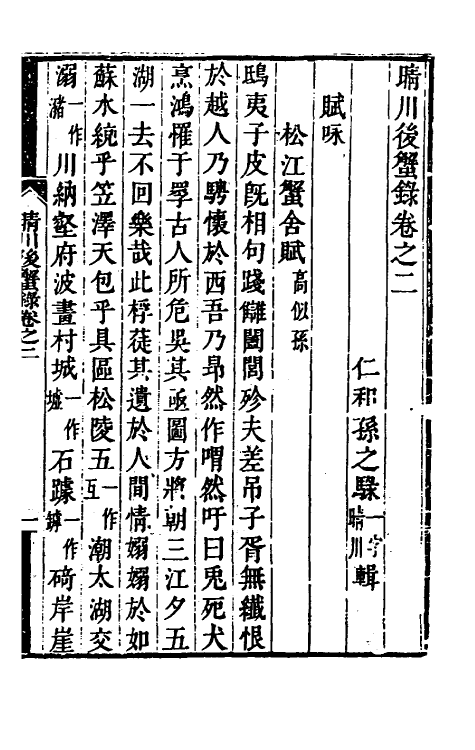 晴川後蟹錄卷之二
仁和孫之騄一字晴川輯
賦咏
松江蟹舍賦高似孫
鴟夷子皮旣相句踐讎闔閭殄夫差吊子胥無纎恨
於越人乃騁懷於西吾乃昻然作喟然吁曰兎死犬
烹鴻罹于羅古人所危吳其亟圖方將朝三江夕五
湖一去不回樂哉此桴蓰其遺於人間情嫋嫋於如
蘇水統乎笠澤天包乎具區松陵五一作互潮太湖交
溺一作瀦川納壑府波畫村城一作墟石蹲一作罅碕岸崖
晴川後蟹錄卷之二
一